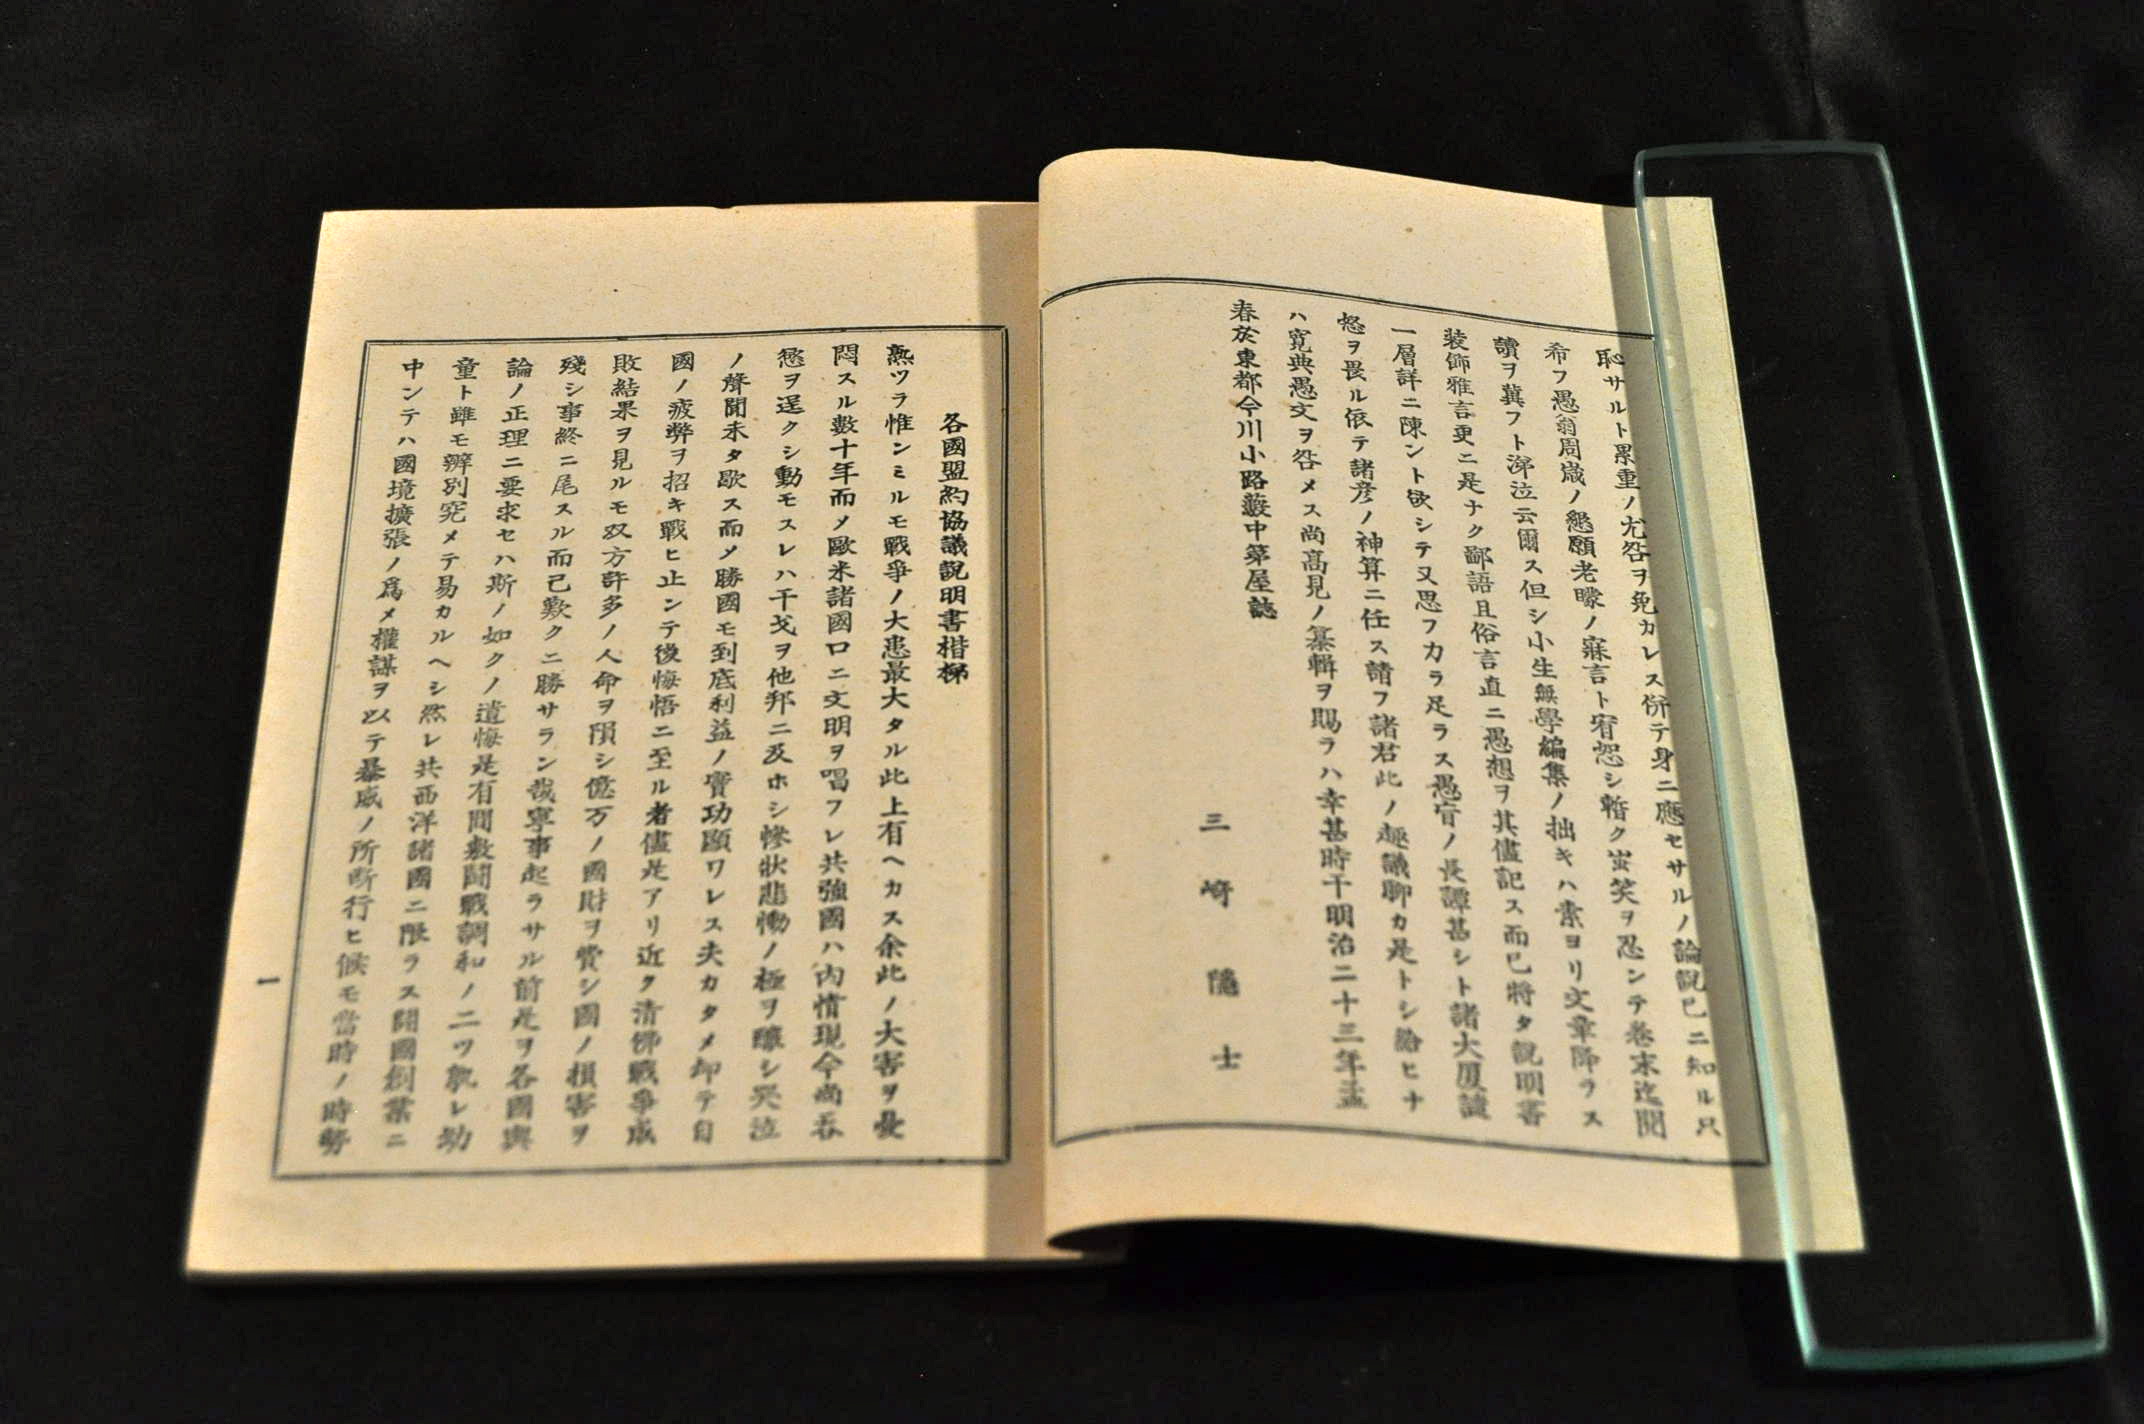 恥サルト累重ノ尤咎ヲ免カレス併テ身ニ應セサルノ論説已ニ知ル只
希フ愚翁周歳ノ懇願老矇ノ寐言ト宥恕シ暫ク蚩笑ヲ忍ンテ巻末迄閲
讀ヲ冀フト涕泣云爾ス但シ小生無學編集ノ拙キハ素ヨリ文章飾ラス
装飾雅言更ニ是ナク鄙語且俗言直ニ愚想ヲ其儘記ス而已將タ説明書
一層詳ニ陳ント欲シテ又思フカラ足ラス愚盲ノ長譚甚シト諸大厦讀
怒ヲ畏ル依テ諸彦ノ神算ニ任ス請フ諸君此ノ趣議聊カ是トシ給ヒナ
ハ寛典愚文ヲ咎メス尚高見ノ纂輯ヲ賜ラハ幸甚時干明治二十三年孟
春於東都今川小路薮中第屋誌
三﨑隱士
各國盟約協議説明書楷梯
熟ツラ惟ンミルモ戰爭ノ大患最大タル此上有ヘカス余此ノ大害ヲ憂
悶スル數十年而メ歐米諸國口ニ文明ヲ唱フレ共強國ハ内情現今尚呑
慾ヲ逞クシ動モスレハ干戈ヲ他邦ニ及ホシ慘狀悲慟ノ極ヲ釀シ哭泣
ノ聲聞未タ歇ス而メ勝國モ到底利益ノ實功顯ワレス夫カタメ却テ自
國ノ疲弊ヲ招キ戰ヒ止ンテ後悔悟ニ至ル者儘是アリ近ク清佛戰爭成
敗結果ヲ見ルモ双方許多ノ人命ヲ隕シ億万ノ國財ヲ費シ國ノ損害ヲ
殘シ事終ニ尾スル而已歎クニ勝サラン哉寧事起ラサル前是ヲ各國輿
論ノ正理ニ要求セハ斯ノ如クノ遺悔是有間敷鬪戰調和ノ二ツ孰レ幼
童ト雖モ辨別究メテ易カルヘシ然レ共西洋諸國ニ限ラス開國創業ニ
中ンテハ國境擴張ノ爲メ權謀ヲ以テ暴威ノ所斷行ヒ候モ當時ノ時勢
一